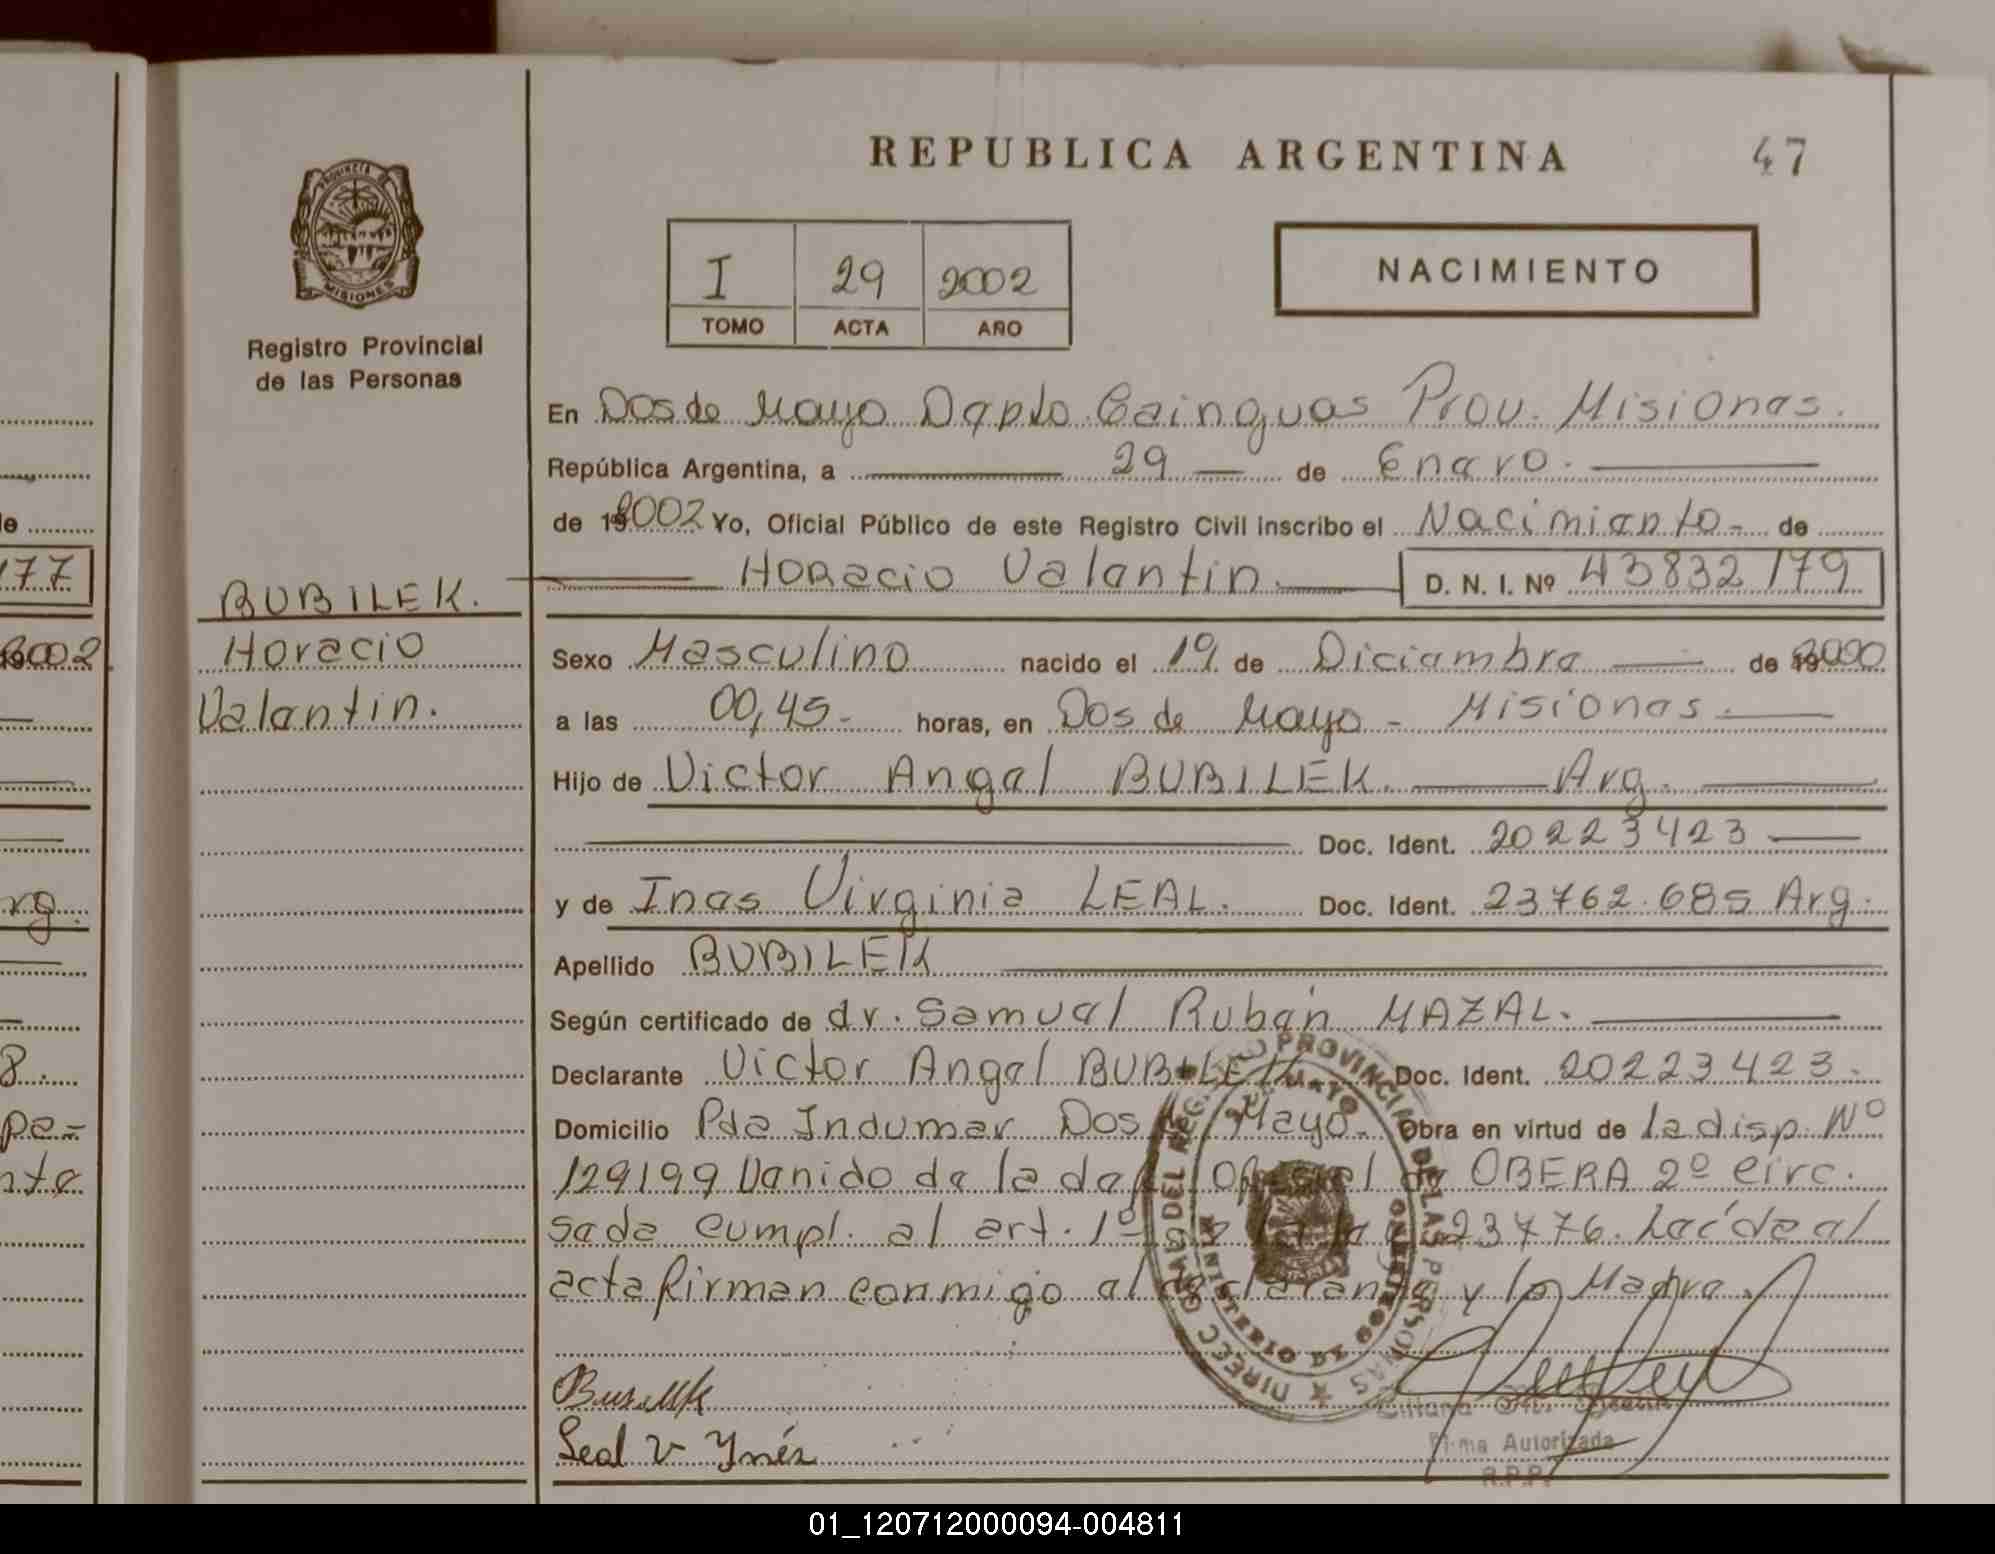 REPUBLICA ARGENTINA
47
PROVINCIA DE
MISIONES
Registro Provincial
de las Personas
I 29 2002
TOMO ACTA AÑO
NACIMIENTO
En Dos de Mayo Dapto. Cainguas Prov. Misiones.
República Argentina, a 29 de Enero.
de 192002 Yo, Oficial Público de este Registro Civil inscribo el Nacimiento - de
177
BUBILEK.
HORacio Valentin. D. N. I. Nº 43832179
Horacio
Valentin.
2002
Sexo Masculino nacido el 19 de Diciembre de 192000
a las 00,45- horas, en Dos de Mayo - Misiones.
Hijo de Victor Angel BUBILEK. Arg.
Doc. Ident. 20223423
rg.
y de Ines Virginia LEAL. Doc. Ident. 23762.685 Arg.
Apellido BUBILEK
Según certificado de dr. Samuel Rubén MAZAL.
8.
Declarante Victor Angel BUBILEK Doc. Ident. 20223423.
pe=
Domicilio Pda Indumar Dos Mayo. Obra en virtud de la disp. Nº
nte
129199 Venido de la OBERA 2º Circ.
sada Cumpl. al art. 1º 23476. Leída el
acta firman conmigo el declarante y la Madre.
DIRECC. GRAL. DEL REGISTRO PROVINCIAL DE LAS PERSONAS
MINISTERIO DE GOBIERNO
Leal V Ynés
Firma Autorizada
R.P.P.
01_120712000094-004811